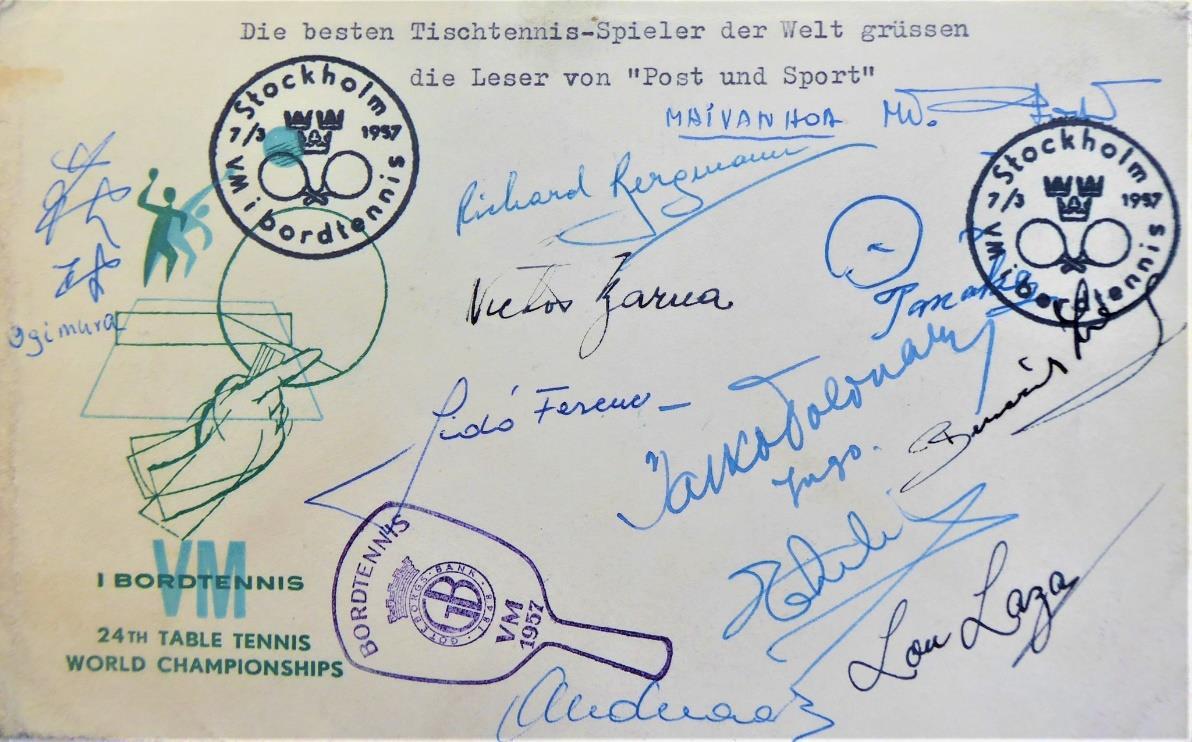 Die besten Tischtennis-Spieler der Welt grüssen
die Leser von "Post und Sport"
MAIVANHOA
Stockholm
7/3 1957
VM i bordtennis
Stockholm
7/3 1957
VM i bordtennis
Richard Bergmann
Victor Barna
Ogimura
Tanaka
Sidó Ferenc
Jugo.
Lou Laza
BORDTENNIS
GÖTEBORGS·BANK
GB
VM
1957
VM
I BORDTENNIS
24TH TABLE TENNIS
WORLD CHAMPIONSHIPS